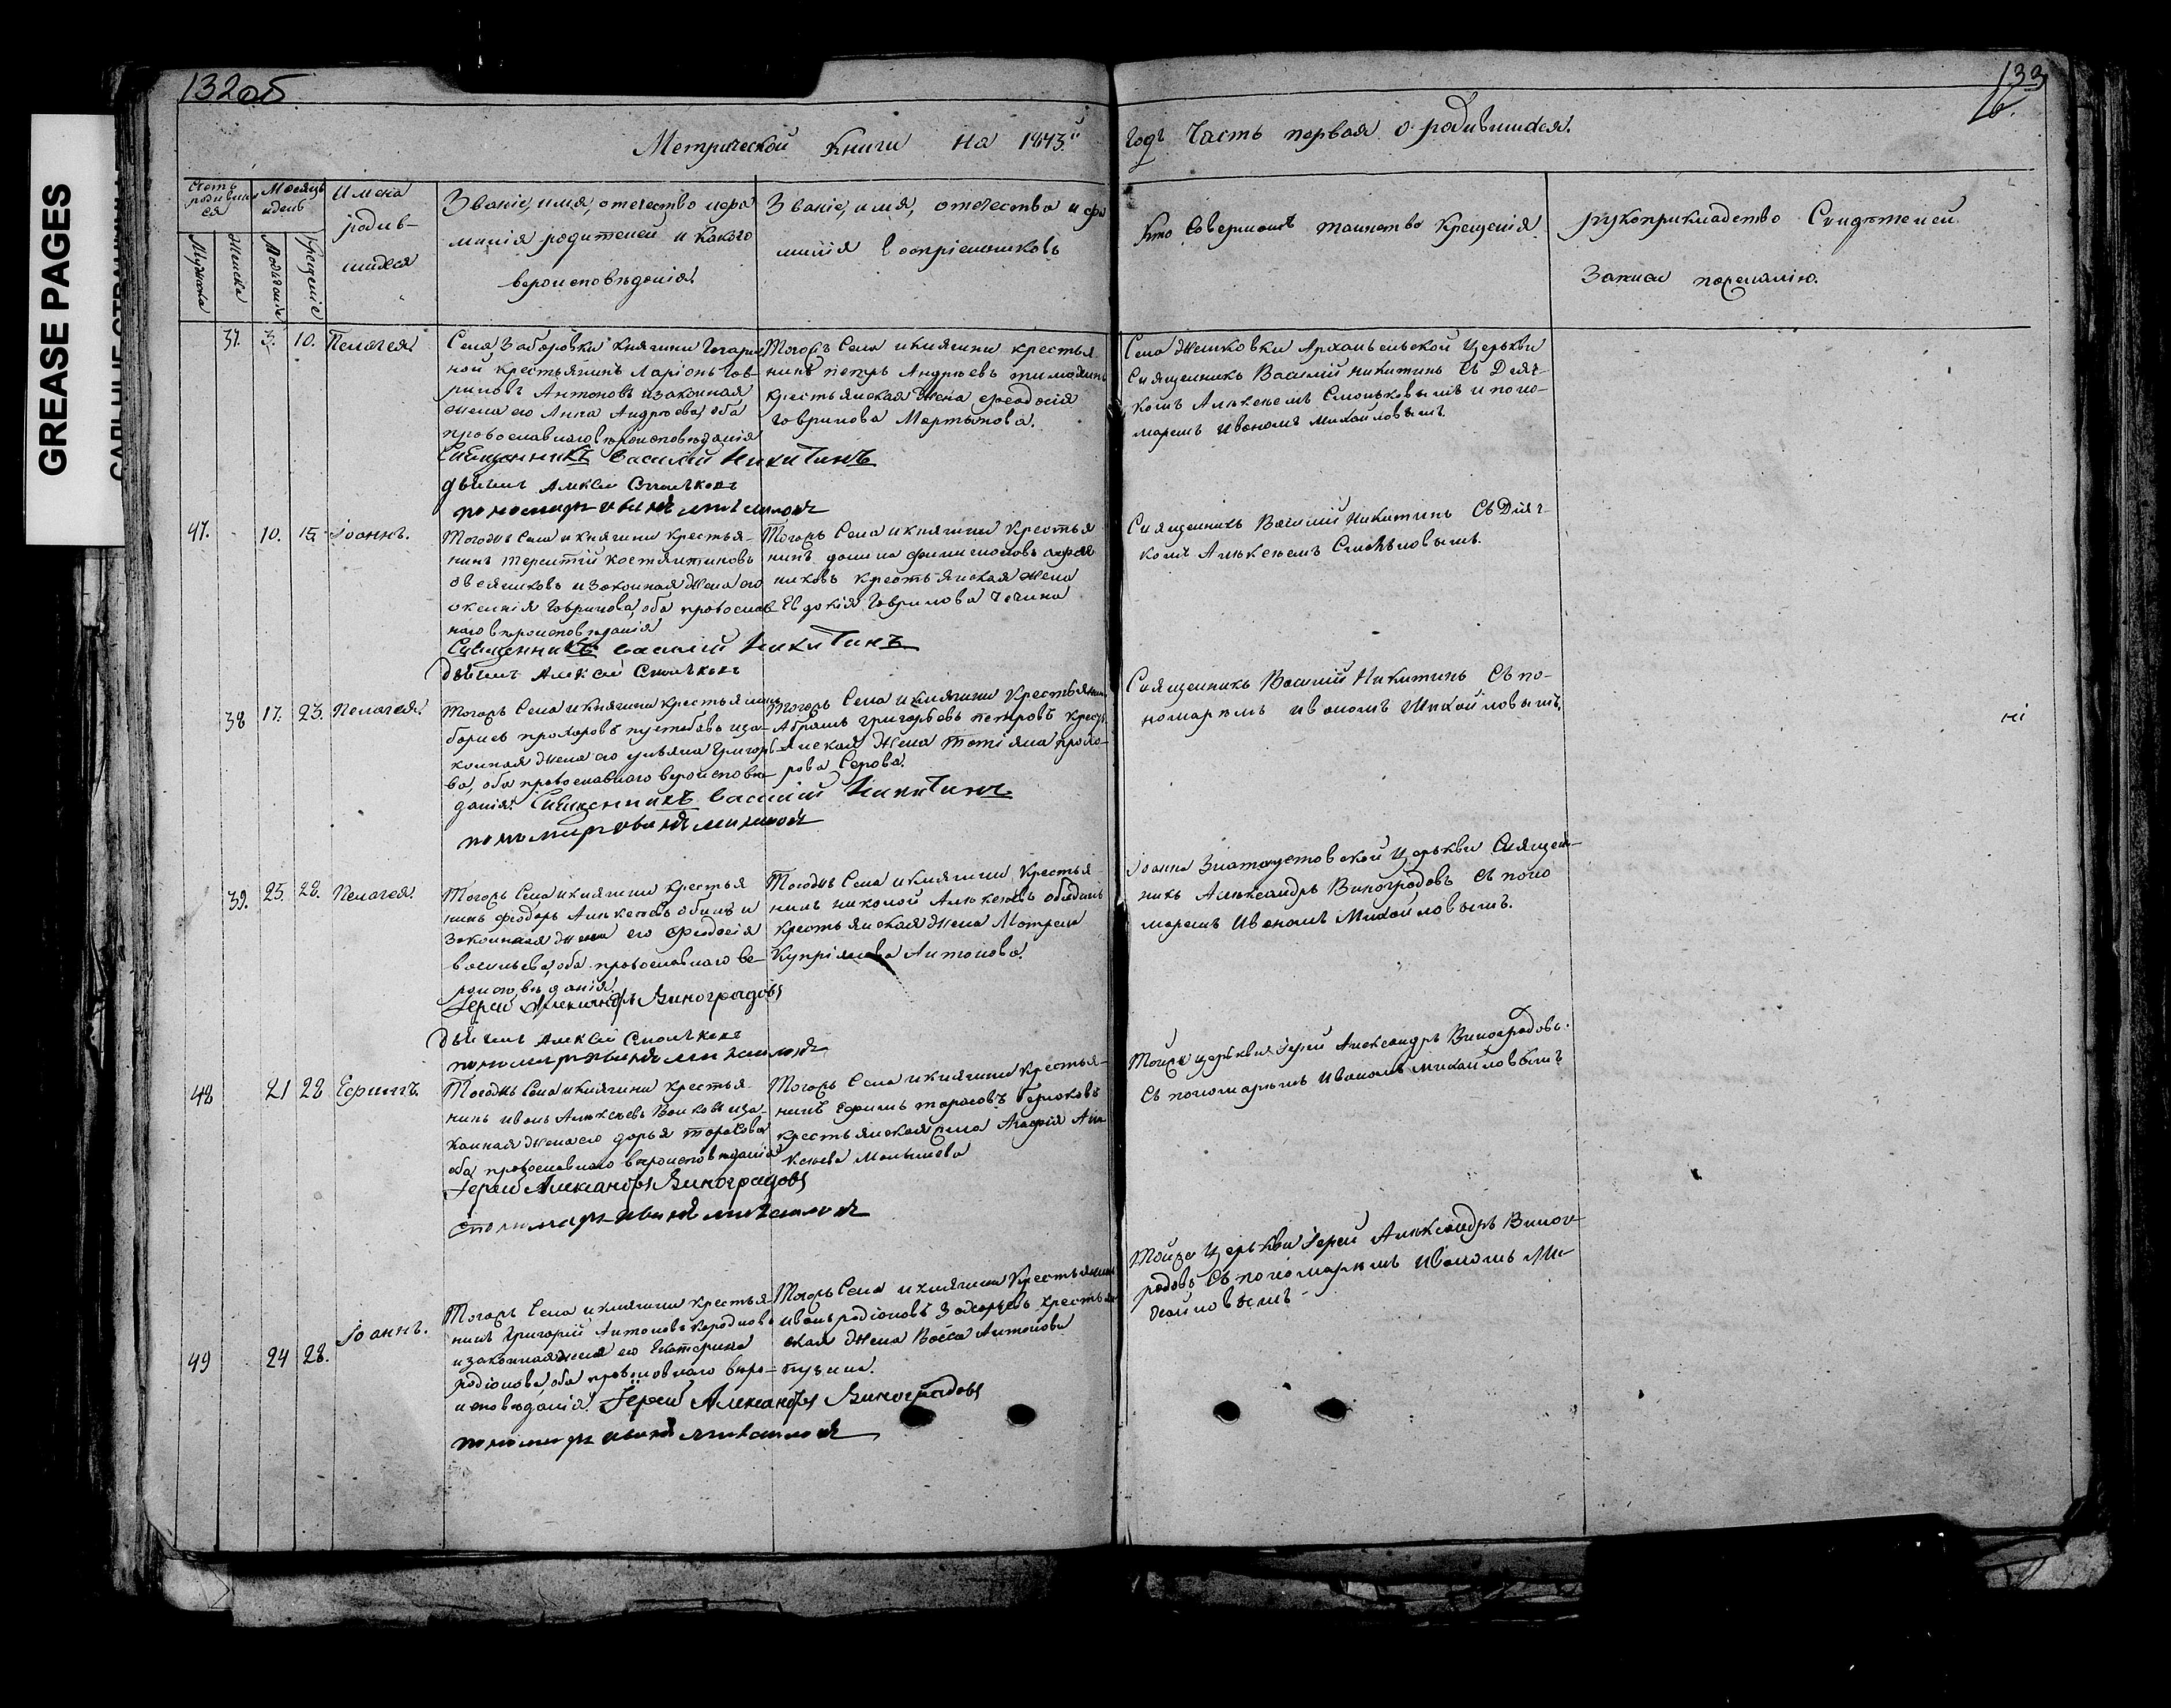 132об.
133
GREASE PAGES
Метрической Книги на 1843й
годъ Часть первая о родившихся.
Счетъ родившихся
Мужска
Женска
Месяцъ и день
Рожденія
Крещенія
Имена
родив-
шихся
Званіе, имя, отечество и фа
милія родителей и какого
вероисповѣданія.
Званіе, имя, отечество и фа
милія воспріемниковъ
Кто Совершалъ таинство Крещенія.
рукоприкладство Свидѣтелей
Записи пожеланію.
37. 3. 10. Пелагея.
Села Заборовки княгини Гагари
ной крестьянинъ Ларіонъ Гав-
риловъ Антоновъ изаконная
жена его Анна Андреева, оба
православнаго вѣроисповѣданія
Священникъ Василій Никитинъ
дьячекъ Алексѣй
пономарь Иванъ Михайловъ
Тогожъ Села и княгини крестья
нинъ петръ Андреевъ
крестьянская жена Феодосія
Гаврилова Мартынова.
Села Жемковки Архангельской Церькви
Священникъ Василій Никитинъ Съ Дьяч-
комъ Алексѣемъ и поно-
маремъ Иваномъ Михайловымъ
47. 10. 15. Іоаннъ.
Тогожъ Села и княгини крестья-
нинъ терентій костянтиновъ
овсяниковъ изаконная Жена его
ксенія Гаврилова, оба православ
наго вѣроисповѣданія
Священникъ Василій Никитинъ
дьячекъ Алексѣй
Тогожъ Села и княгини Крестья
нинъ данила филимоновъ
никовъ крестьянская жена
Евдокія Гаврилова
Священникъ Василій Никитинъ Съ Дьяч-
комъ Алексѣемъ
38 17. 23. Пелагея.
Тогожъ Села и княгини крестьянинъ
борисъ прохоровъ иза-
конная жена его ульяна Григорье
ва, оба православнаго вероисповѣ-
данія. Священникъ Василій Никитинъ
пономарь Иванъ Михайловъ
Тогожъ Села и княгини Крестьянинъ
Абрамъ григорьевъ петровъ крес
янская Жена татіяна прохо-
рова Серова.
Священникъ Василій Никитинъ Съ по-
номаремъ Иваномъ Михайловымъ.
39. 25. 28. Пелагея.
Тогожъ Села и княгини крестья
нинъ феодоръ Алексеевъ и
Законная Жена его Феодосія
васильева, оба православнаго ве-
роисповѣданія.
Іерей Александръ Виноградовъ
дьячекъ Алексѣй
пономарь Иванъ Михайловъ
Тогожъ Села и княгини Крестья
нинъ николай Алексеевъ
крестьянская жена Матрена
Купріянова Антонова.
Іоанна Златоустовской Церькви Священ-
никъ Александръ Виноградовъ Съ поно
маремъ Иваномъ Михайловымъ.
48 21 28 Ефимъ.
Тогожъ Села и княгини крестья
нинъ иванъ Алексеевъ Волковъ иза-
конная жена его дарья тарасова
оба православнаго вѣроисповѣданія
Іерей Александръ Виноградовъ
Спономарь Иванъ Михайловъ
Тогожъ Села и княгини крестья-
нинъ Ефимъ тарасовъ
крестьянская жена Агафія Але
ксеева Малышева
Тойже церкви Іерей Александръ Виноградовъ.
Съ пономаремъ Иваномъ Михайловымъ
49 24 28. Іоаннъ.
Тогожъ Села и княгини крестья
нинъ Григорій Антоновъ
изаконная жена его Екатерина
родіонова, оба православнаго веро-
исповѣданія. Іерей Александръ Виноградовъ
пономарь Иванъ Михайловъ
Тогожъ Села и княгини Крестьянинъ
иванъ родіоновъ Захаровъ крестьян
ская Жена Васса Антонова
Пузина.
Тойже Церькви Іерей Александръ Виног-
радовъ Съ пономаремъ Иваномъ Ми-
хайловымъ